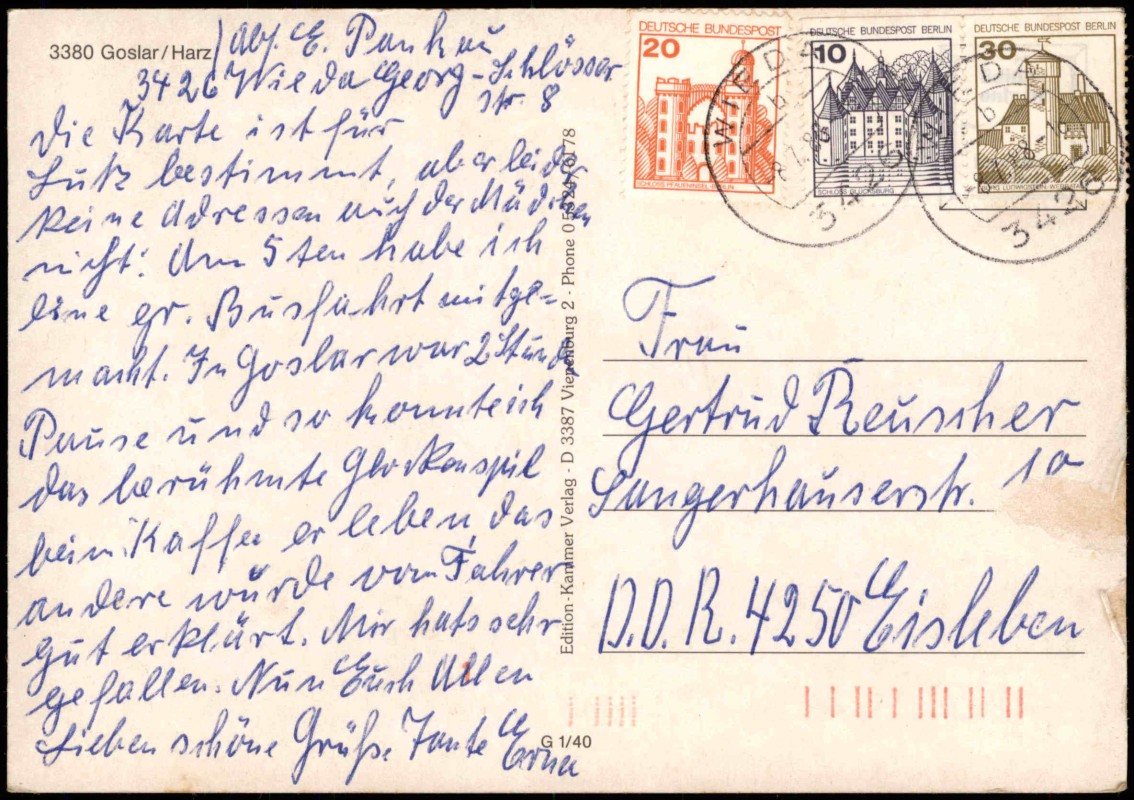 3380 Goslar/Harz
Abs. E. Pankau
3426 Wieda Georg-Schlösser
Str. 8
Die Karte ist für
Lutz bestimmt, aber leider
keine Adressen auch der Mädchen
nicht. Am 5ten habe ich
eine gr. Busfahrt mitge=
macht. In Goslar war 2 Stunde
Pause und so konnte ich
das berühmte Glockenspil
beim Kaffee erleben, das
andere würde vom Fahrer
gut erklärt. Mir hats sehr
gefallen. Nun Euch Allen
Lieben schöne Grüße Tante Erna
Edition-Kammer Verlag - D 3387 Vienenburg 2 - Phone
G 1/40
DEUTSCHE BUNDESPOST
20
SCHLOSS PFAUENINSEL BERLIN
DEUTSCHE BUNDESPOST BERLIN
10
SCHLOSS GLÜCKSBURG
DEUTSCHE BUNDESPOST BERLIN
30
WIEDA
b
3426
WIEDA
b
3426
Frau
Gertrud Reuscher
Sangerhauserstr. 10
D.D.R. 4250 Eisleben